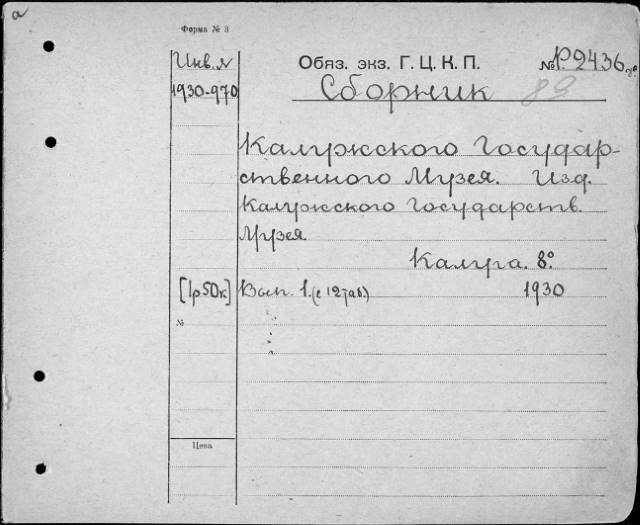 а
Форма № 3
Инв. №
Обяз. экз. Г. Ц. К. П.
№ Р2436
1930-970
Сборник
89
Калужского Государ-
ственного Музея. Изд.
Калужского Государств.
Музея
Калуга. 8°.
[1р50к]
Вып. 1. (с 12 таб.)
1930
№
Цена